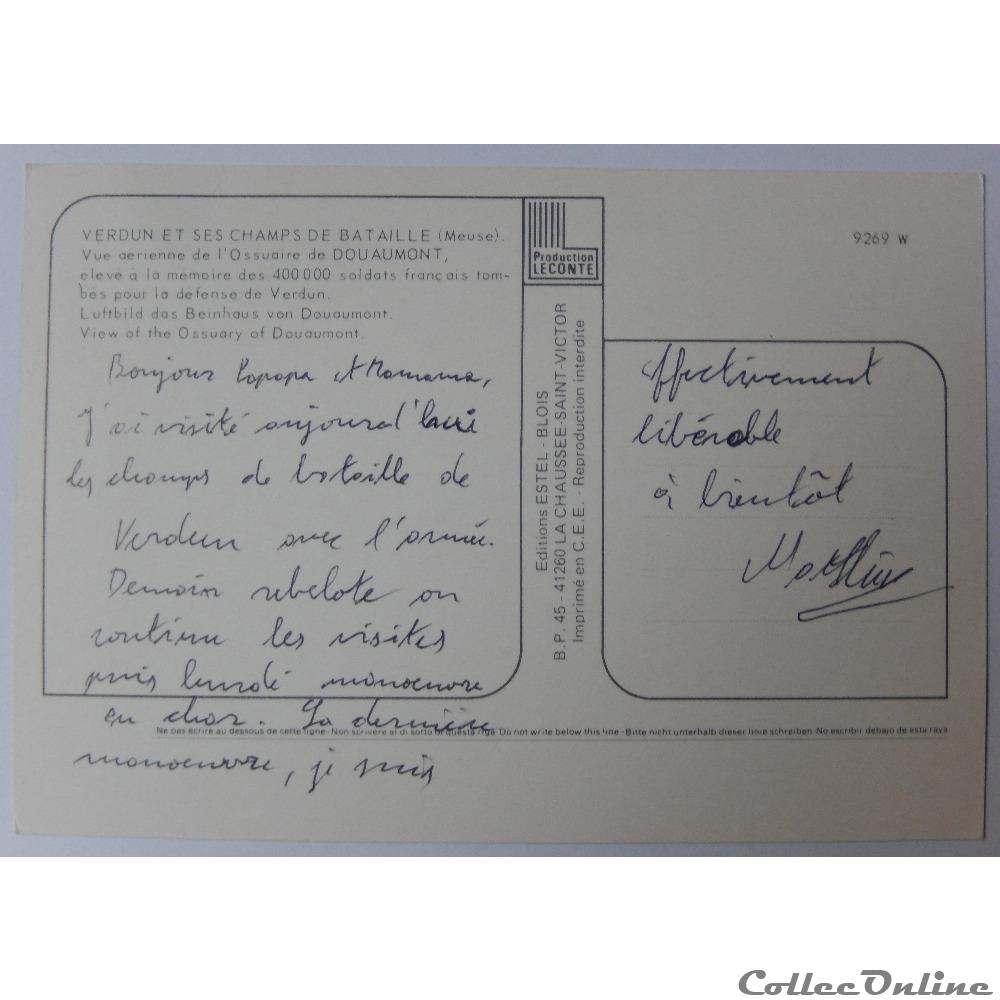 VERDUN ET SES CHAMPS DE BATAILLE (Meuse).
Vue aérienne de l'Ossuaire de DOUAUMONT,
élevé à la mémoire des 400 000 soldats français tom-
bés pour la défense de Verdun.
Luftbild das Beinhaus von Douaumont.
View of the Ossuary of Douaumont.
Bonjour Papapa et Mamama,
J'ai visité aujourd'hui
les champs de bataille de
Verdun avec l'armée.
Demain rebelote on
continu les visites
puis lundi manoeuvre
en char. La dernière
manoeuvre, je suis
Production
LECONTE
Editions ESTEL - BLOIS
B.P. 45 - 41260 LA CHAUSSEE-SAINT-VICTOR
Imprimé en C.E.E. - Reproduction interdite
9269 W
effectivement
libérable
à bientôt
Mathieu
Ne pas écrire au dessous de cette ligne - Non scrivere al di sotto di questa riga - Do not write below this line - Bitte nicht unterhalb dieser linie schreiben - No escribir debajo de esta raya
CollecOnline